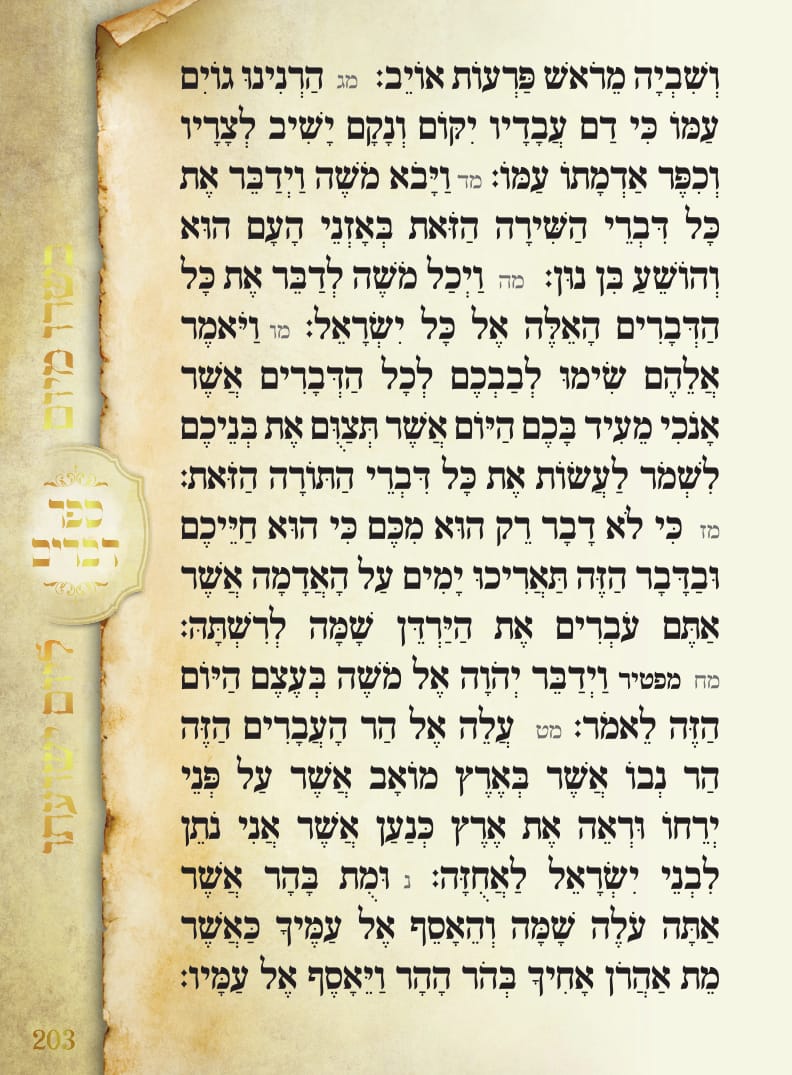 וְשִׁבְיָה מֵרֹאשׁ פַּרְעוֹת אוֹיֵב: מג הַרְנִינוּ גוֹיִם
עַמּוֹ כִּי דַם עֲבָדָיו יִקּוֹם וְנָקָם יָשִׁיב לְצָרָיו
וְכִפֶּר אַדְמָתוֹ עַמּוֹ: מד וַיָּבֹא מֹשֶׁה וַיְדַבֵּר אֶת
כָּל דִּבְרֵי הַשִּׁירָה הַזֹּאת בְּאָזְנֵי הָעָם הוּא
וְהוֹשֵׁעַ בִּן נוּן: מה וַיְכַל מֹשֶׁה לְדַבֵּר אֶת כָּל
הַדְּבָרִים הָאֵלֶּה אֶל כָּל יִשְׂרָאֵל: מו וַיֹּאמֶר
אֲלֵהֶם שִׂימוּ לְבַבְכֶם לְכָל הַדְּבָרִים אֲשֶׁר
אָנֹכִי מֵעִיד בָּכֶם הַיּוֹם אֲשֶׁר תְּצַוֻּם אֶת בְּנֵיכֶם
לִשְׁמֹר לַעֲשׂוֹת אֶת כָּל דִּבְרֵי הַתּוֹרָה הַזֹּאת:
מז כִּי לֹא דָבָר רֵק הוּא מִכֶּם כִּי הוּא חַיֵּיכֶם
וּבַדָּבָר הַזֶּה תַּאֲרִיכוּ יָמִים עַל הָאֲדָמָה אֲשֶׁר
אַתֶּם עֹבְרִים אֶת הַיַּרְדֵּן שָׁמָּה לְרִשְׁתָּהּ:
מח מפטיר וַיְדַבֵּר יְהוָה אֶל מֹשֶׁה בְּעֶצֶם הַיּוֹם
הַזֶּה לֵאמֹר: מט עֲלֵה אֶל הַר הָעֲבָרִים הַזֶּה
הַר נְבוֹ אֲשֶׁר בְּאֶרֶץ מוֹאָב אֲשֶׁר עַל פְּנֵי
יְרֵחוֹ וּרְאֵה אֶת אֶרֶץ כְּנַעַן אֲשֶׁר אֲנִי נֹתֵן
לִבְנֵי יִשְׂרָאֵל לַאֲחֻזָּה: נ וּמֻת בָּהָר אֲשֶׁר
אַתָּה עֹלֶה שָׁמָּה וְהֵאָסֵף אֶל עַמֶּיךָ כַּאֲשֶׁר
מֵת אַהֲרֹן אָחִיךָ בְּהֹר הָהָר וַיֵּאָסֶף אֶל עַמָּיו:
בשרו מיום
ספר
דברים
ליום ישועתו
203